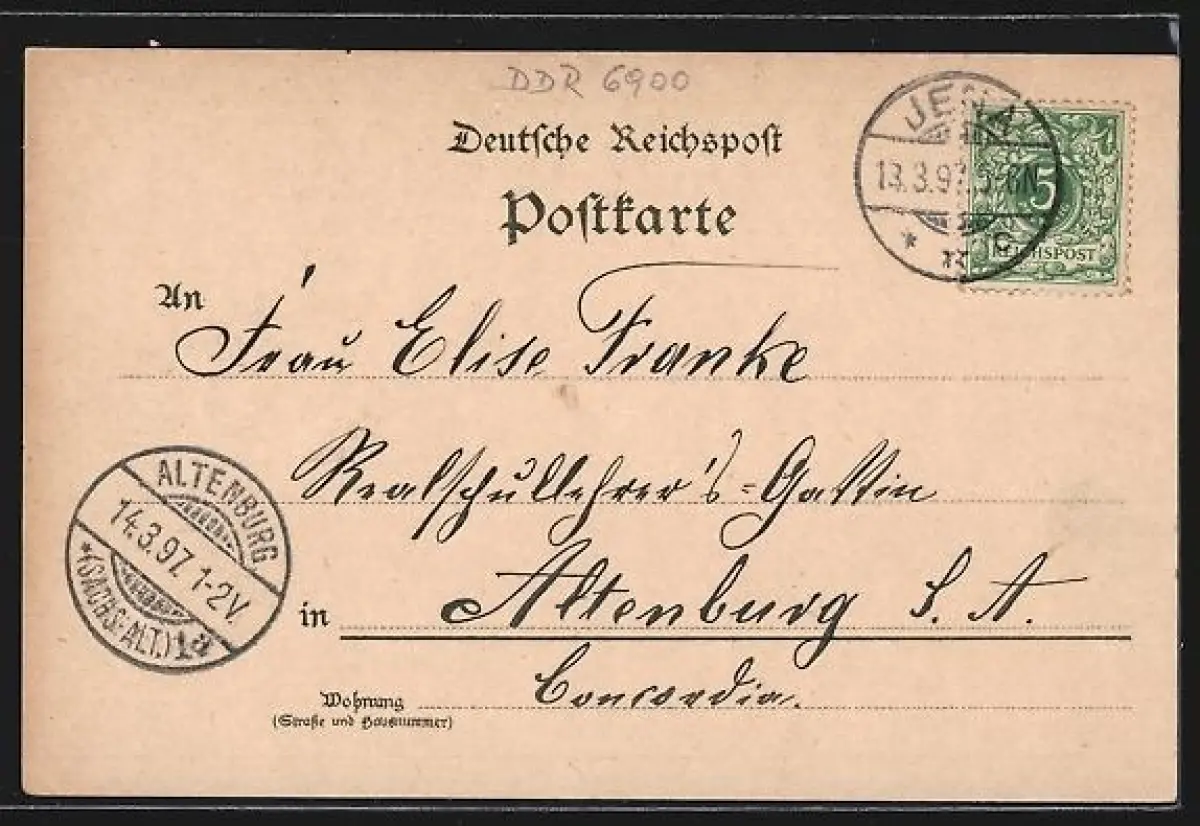 DDR 6900
Deutsche Reichspost
Postkarte
JENA
13.3.97. 5-6N
* c
5
REICHSPOST
An
Frau Elise Franke
Realschullehrer's-Gattin
ALTENBURG
14.3.97. 1-2V.
*(SACHS.-ALT.)
in Altenburg S. A.
Concordia.
Wohnung
(Straße und Hausnummer)